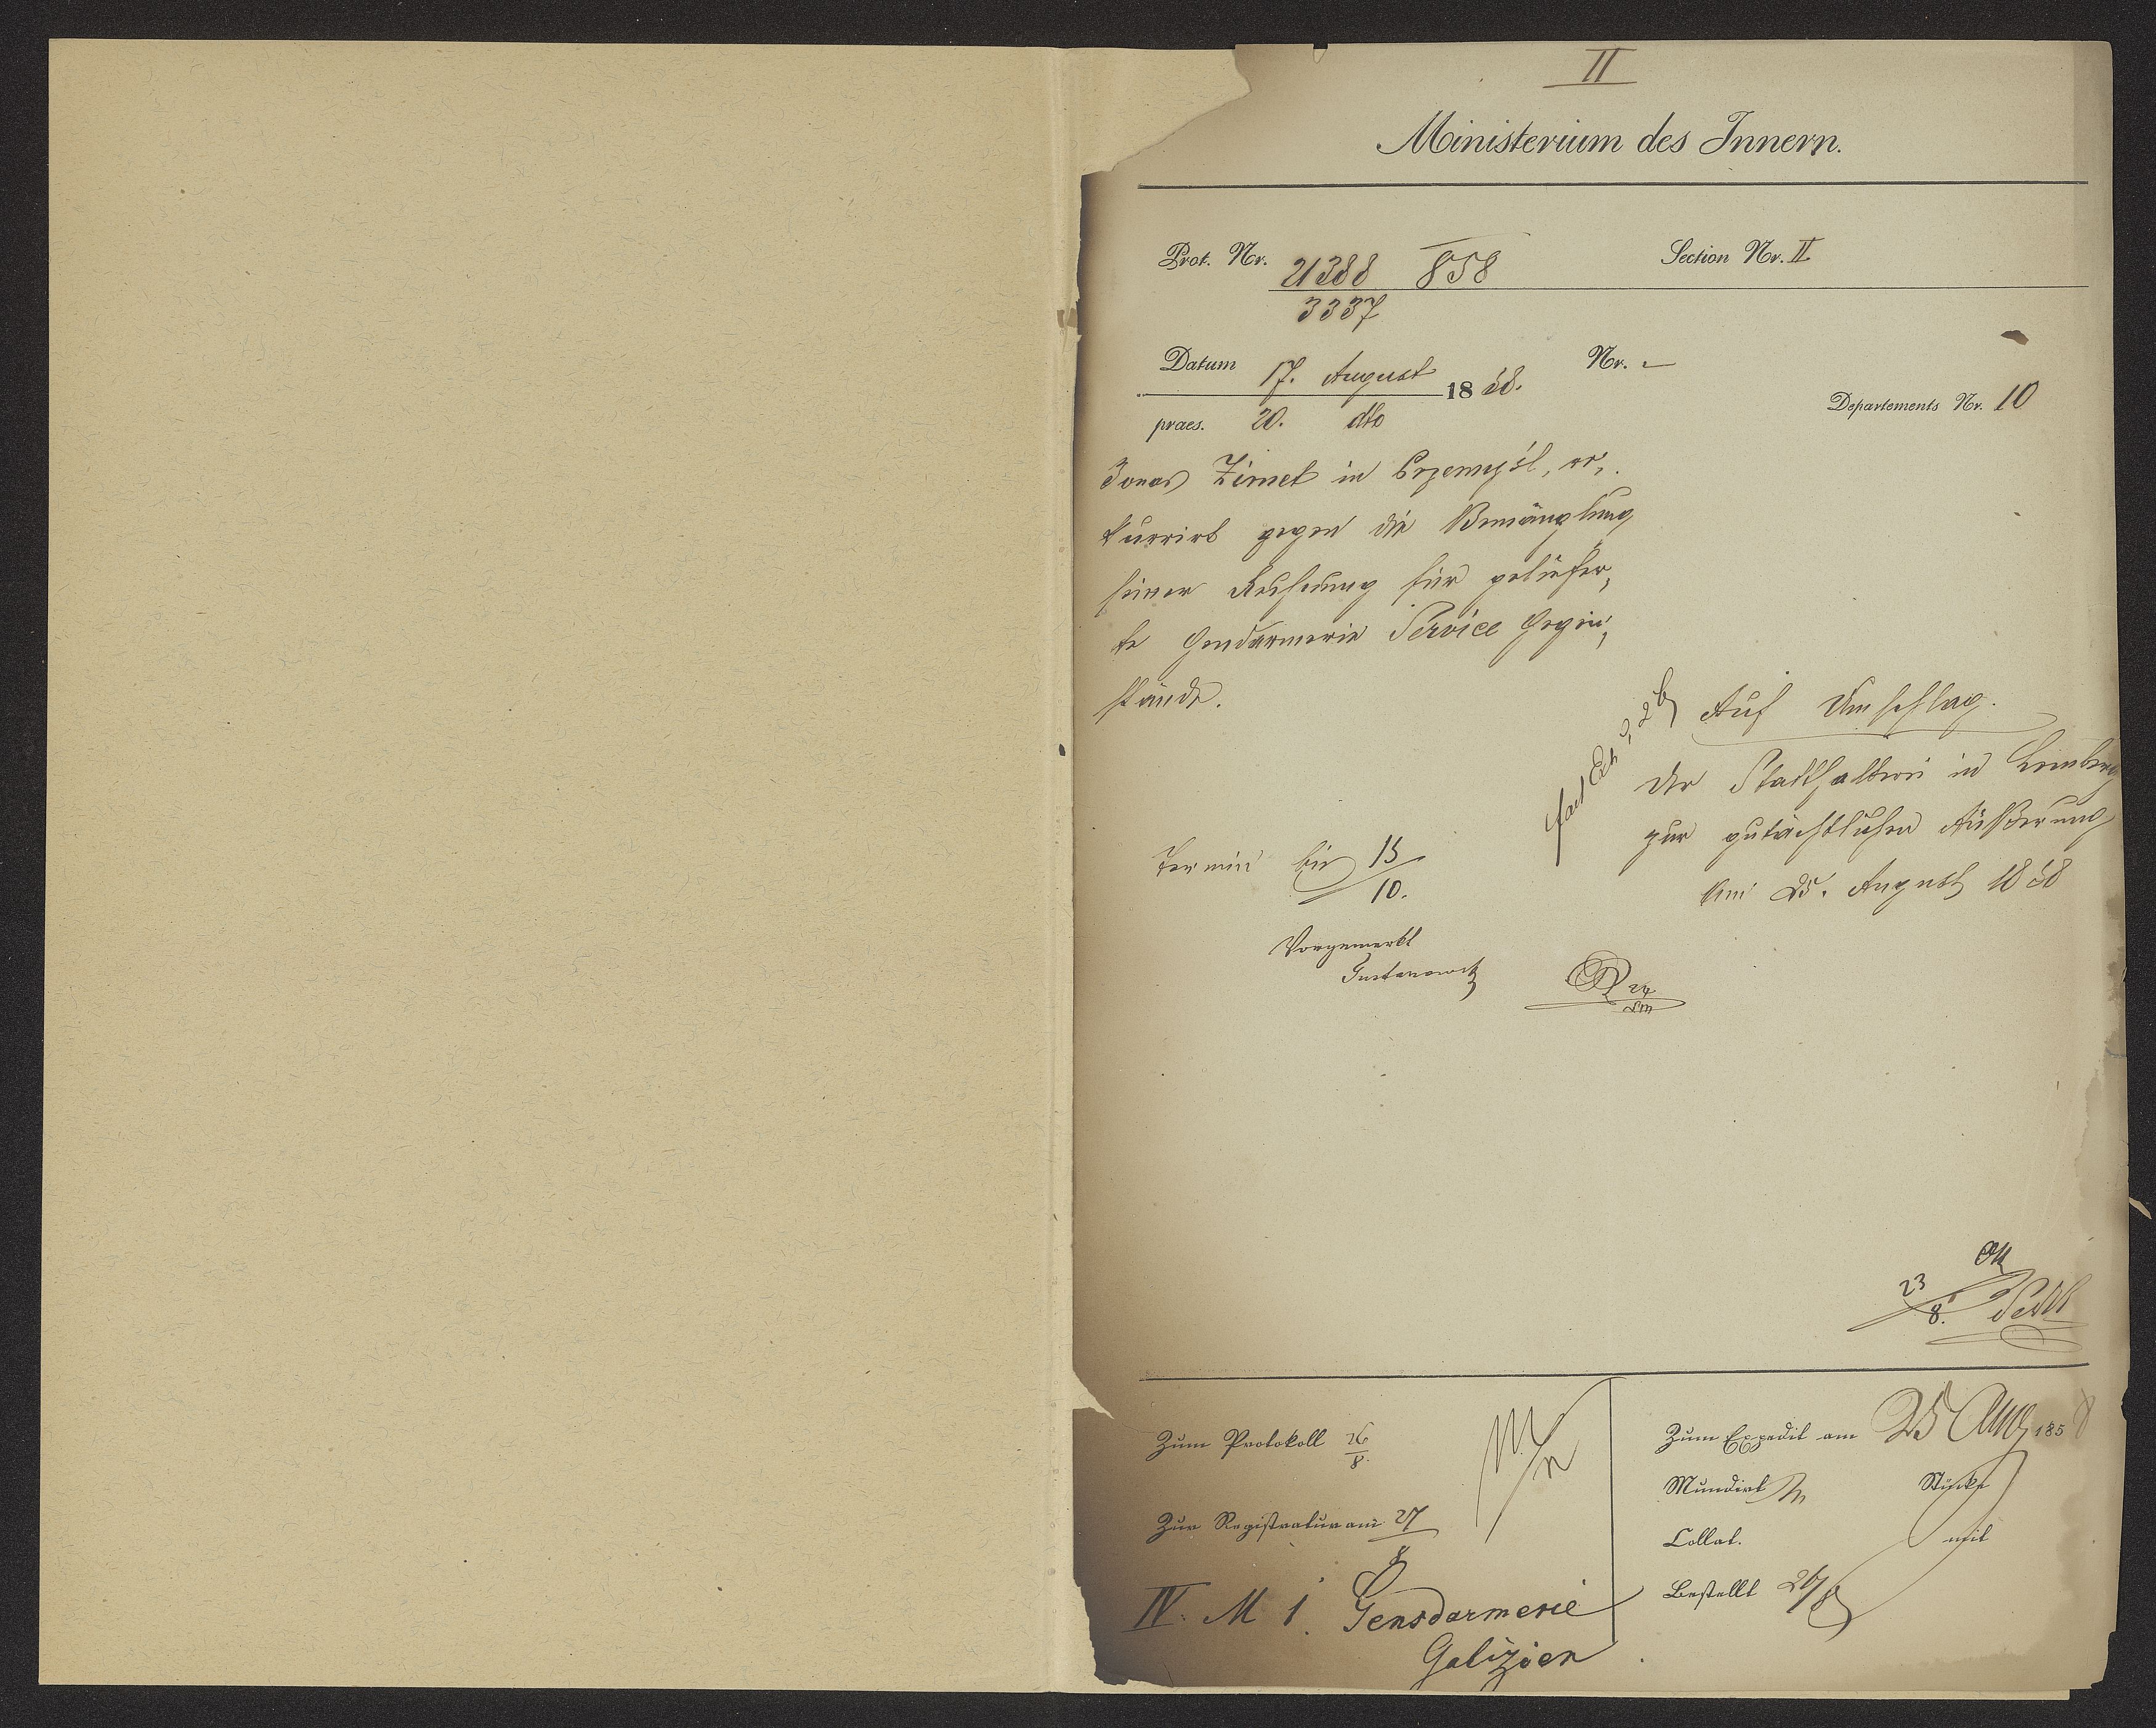 II
Ministerium des Innern.
Prot. Nr. 21388 858
3337
Section Nr. II
Datum 17. August 1858. Nr. -
praes. 20. dto
Departements Nr. 10
Jonas Zimet in Przemyśl, re-
kurrirt gegen die Bemänglung
seiner Rechnung für geliefer-
te Gendarmerie Service Gegen-
stände.
Auf Umschlag.
Der Statthalterei in Lemberg
zur gutächtlichen Äußerung
Am 25. August 1858
Termin bis 15/10.
Vorgemerkt
23/8.
Zum Protokoll 26/8
Zur Registratur am 27/8
IV. M 1. Gensdarmerie
Galizien
Zum Expedit am 25 Aug 1858
Mundirt
Stücke
Collat.
mit
Bestellt 26/8